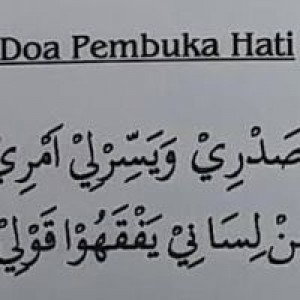 Doa Pembuka Hati
صَدْرِيْ وَيَسِّرْلِيْ اَمْرِيْ
مِنْ لِسَانِيْ يَفْقَهُوْا قَوْلِيْ